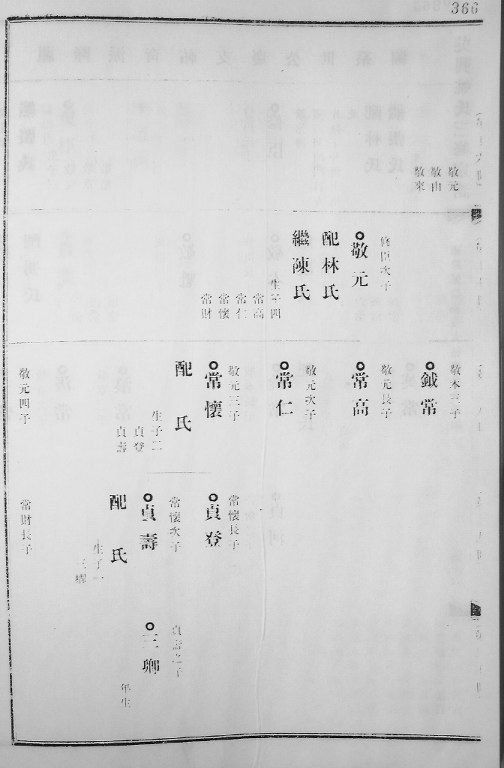 366
敬元
敬由
敬來
修臣次子
敬元
配林氏
繼陳氏
生子四
常高
常仁
常懷
常財
敬本三子
鉞常
敬元長子
常高
敬元次子
常仁
敬元三子
常懷
配 氏
生子二
貞登
貞壽
敬元四子
常懷長子
貞登
常懷次子
貞壽
配 氏
生子一
常財長子
貞壽之子
年生